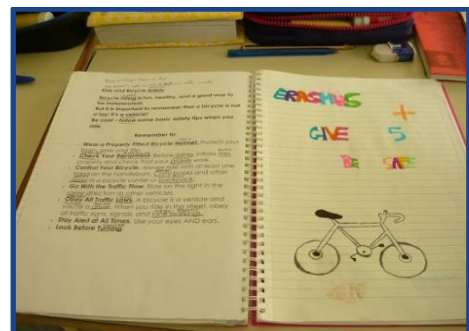 Kids and Bicycle Safety
Bicycle riding is fun, healthy, and a great way to
be independent.
But it is important to remember that a bicycle is not
a toy; it's a vehicle!
Be cool – follow some basic safety tips when you
ride.
Remember to:
- Wear a Properly Fitted Bicycle Helmet. Protect your
brain, save your life.
- Check Your Equipment. Before riding, inflate tires
properly and check that your brakes work.
- Control Your Bicycle. Always ride with at least one
hand on the handlebars. Carry books and other
items in a bicycle carrier or backpack.
- Go With the Traffic Flow. Ride on the right in the
same direction as other vehicles.
- Obey All Traffic Laws. A bicycle is a vehicle and
you're a driver. When you ride in the street, obey
all traffic signs, signals, and lane markings.
- Stay Alert at All Times. Use your eyes AND ears.
- Look Before Turning.
ERASMUS +
GIVE 5
BE SAFE